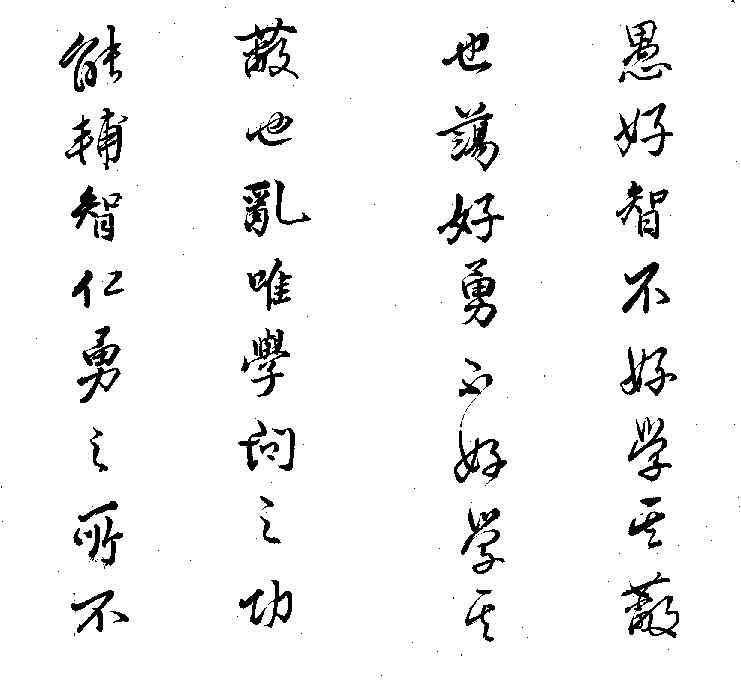 愚好智不好学其蔽
也蕩好勇不好学其
蔽也亂唯學問之功
能輔智仁勇之所不